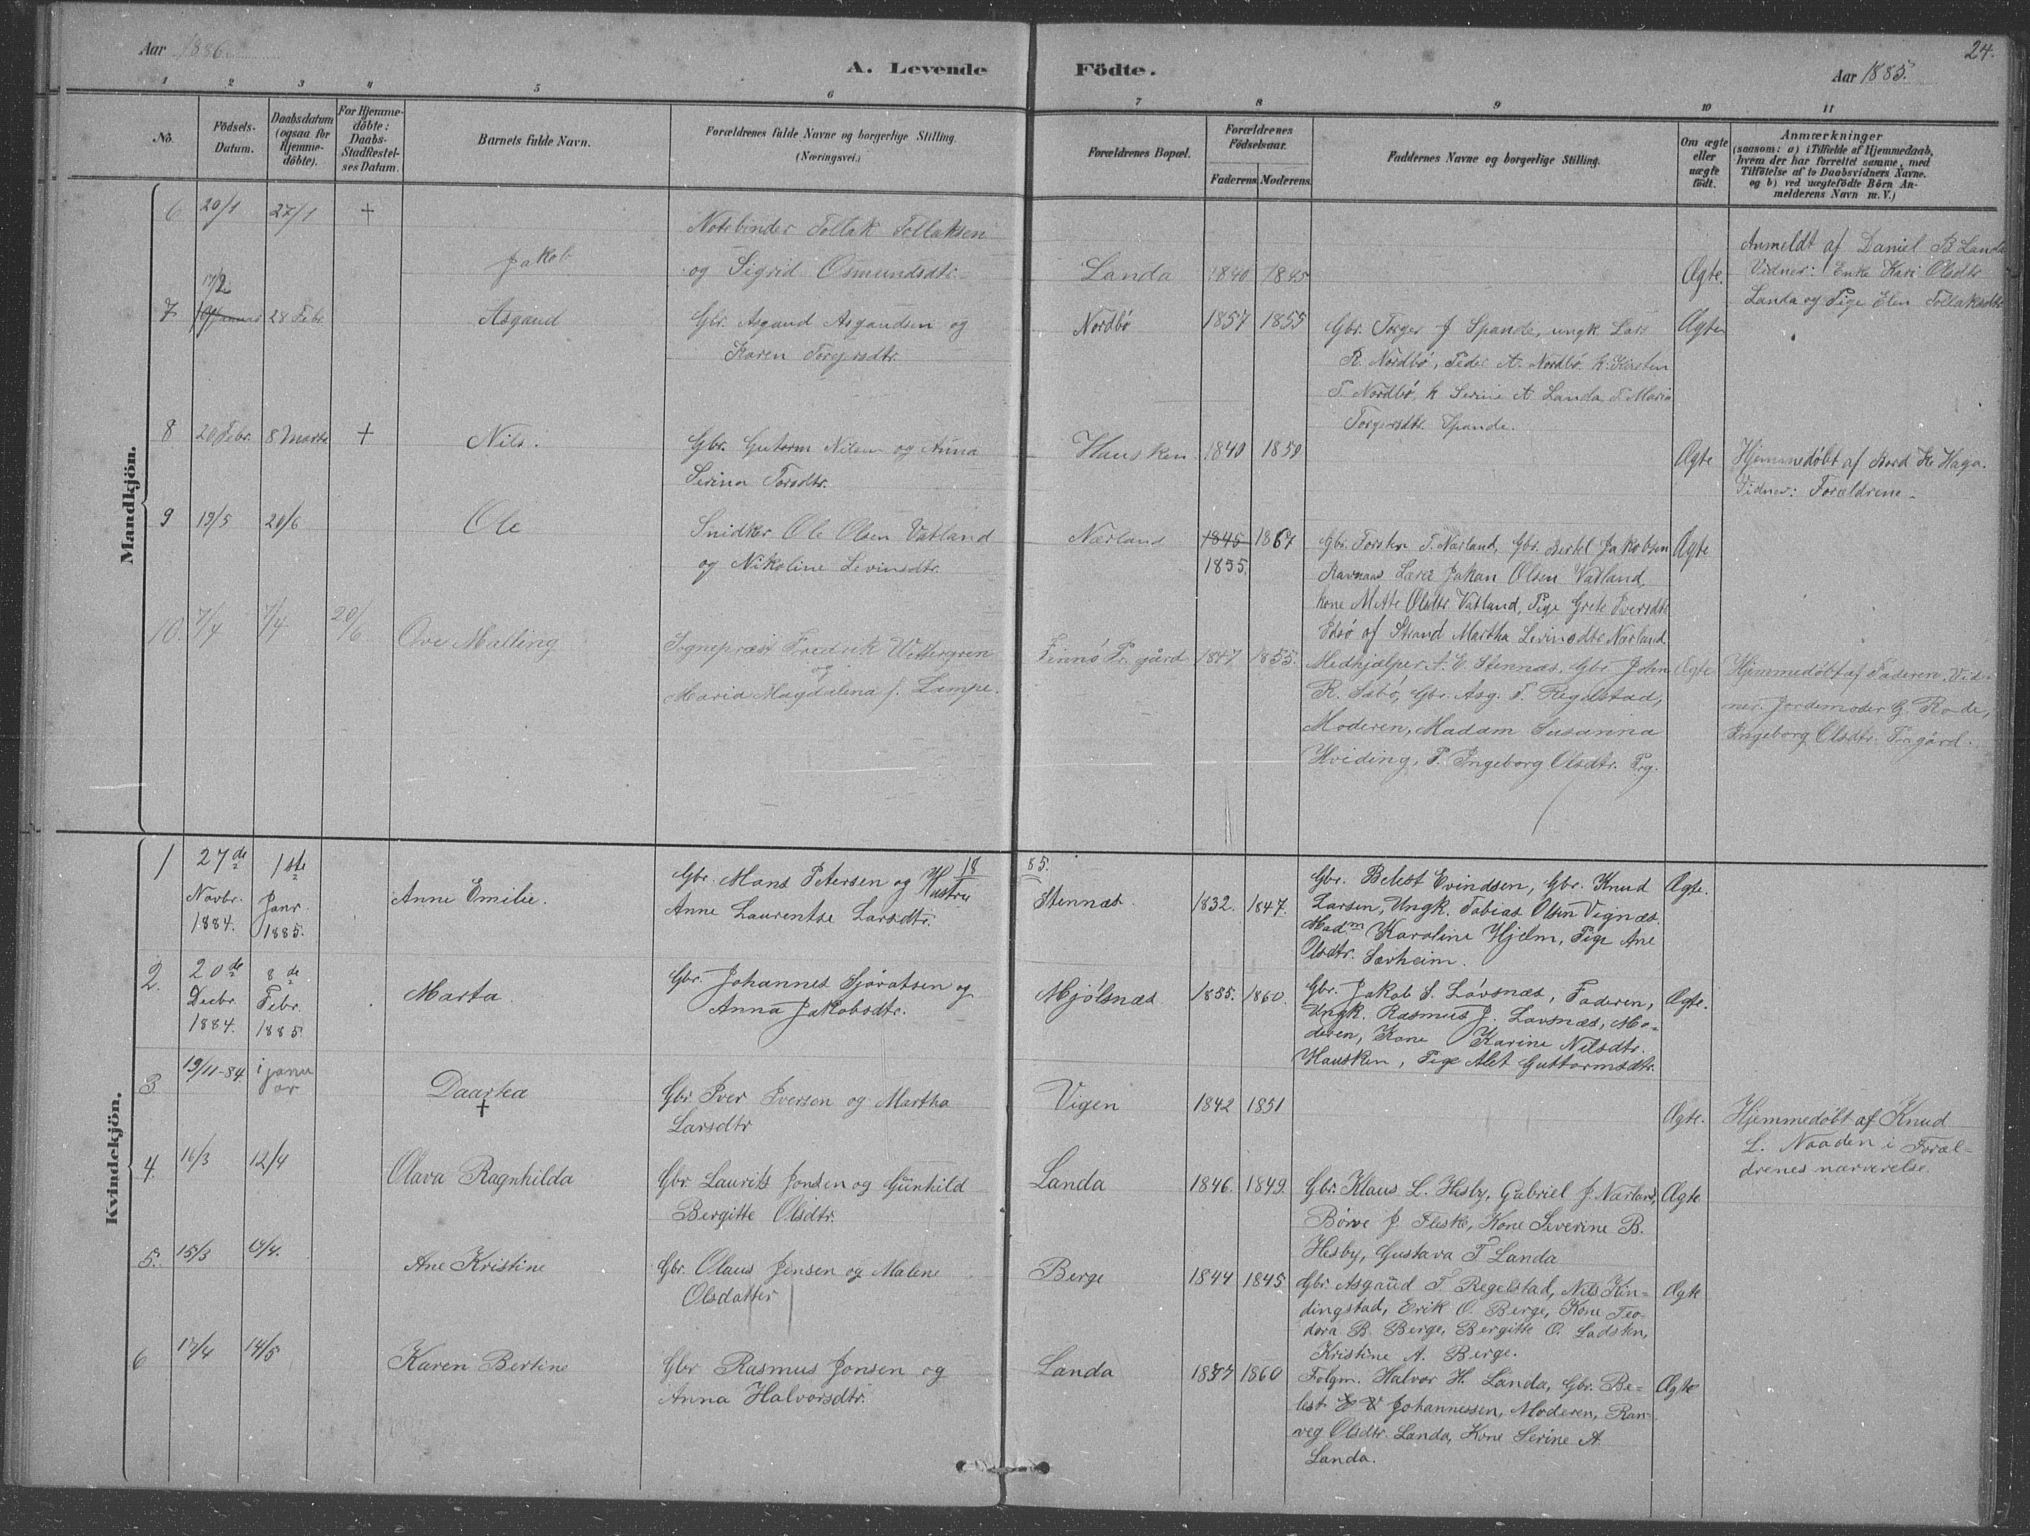 Aar 1886.
A. Levende
Födte.
Aar 1885.
24.
1 2 3 4 5 6 7 8 9 10 11
No.
Födsels-
Datum.
Daabsdatum
(ogsaa for
Hjemme-
döbte).
For Hjemme-
döbte:
Daabs-
Stadfæstel-
ses Datum.
Barnets fulde Navn.
Forældrenes fulde Navne og borgerlige Stilling.
(Næringsvei.)
Forældrenes Bopæl.
Forældrenes
Födselsaar.
Faderens. Moderens.
Faddernes Navne og borgerlige Stilling.
Om ægte
eller
uægte
födt.
Anmærkninger
(saasom: a) i Tilfælde af Hjemmedaab,
hvem der har forrettet samme, med
Tilföielse af to Daabsvidners Navne.
og b) ved uægtefödte Börn An-
melderens Navn m. V.)
Mandkjön.
6 20/1 27/1 +
Jakob
Notebinder Tollak Tollaksen
og Sigrid Osmundsdtr.
Landa 1840 1845
Ægte.
Anmeldt af Daniel B. Landa
Vidner: Enke Kari Olsdtr
Landa og Pige Elen Tollaksdtr
17/2
7 28 Febr
Asgaud
Gbr. Asgaud Asgaudsen og
Karen Torgersdtr.
Nordbø 1857 1855
Gbr. Torger J. Spande, ungk Lars
R. Nordbø, Peder A. Nordbø. k. Kirsten
T. Nordbø, k Serine A Landa P. Maria
Torgersdtr. Spande.
Ægte
8 20 Febr. 8 Marts +
Nils.
Gbr. Gutorm Nilsen og Anna
Serina Torsdtr.
Hausken 1840 1850
Ægte
Hjemmedøbt af Haga.
Vidner: Forældrene.
9 19/5 20/6
Ole
Snidker Ole Olsen Vatland
og Nikoline Levinsdtr.
Nærland 1845 1867
1855.
Gbr. Torsten T. Nærland, Gbr. Bertel Jakobsen
Ravnaas Lærer Johan Olsen Vatland,
kone Mette Olsdtr. Vatland, Pige Grete Iversdtr
af Strand Martha Levinsdtr Nærland
Ægte
10. 7/4 7/4 20/6
Ove Malling
Sognepræst Fredrik Wettergren
og
Maria Magdalena f. Lampe.
Finnø Pr. gård 1847. 1855.
Medhjælper A. E. Stennæs. Gbr. Josten
R. Sæbø, Gbr. Asg. T. Regelstad,
Moderen, Madam Susanna
Hviding, P. Ingeborg Olsdtr. Prg.
Ægte
Hjemmedøbt af Faderen. Vid-
ner. Jordemoder G. Rode,
Ingeborg Olsdtr. Prgård.
Kvindekjön.
18 85.
1 27de
Novbr.
1884.
1ste
Janr.
1885.
Anne Emilie.
Gbr. Mons Petersen og Hustru
Anne Laurentse Larsdtr.
Stennæs. 1832. 1847.
Gbr. Belest Evindsen, Gbr. Knud
Larsen, Ungk. Tobias Olsen Vignæs.
Madm Karoline Hjelm, Pige Ane
Olsdtr. Sørheim.
Ægte.
2. 20de
Decbr.
1884.
8de
Febr.
1885.
Marta.
Gbr. Johannes Sjøvatsen og
Anna Jakobsdtr.
Mjølsnæs. 1855. 1860.
Gbr. Jakob S. Løvsnæs, Faderen,
Ungk. Rasmus J. Løvsnæs, Mo-
deren, Kone Karine Nilsdtr.
Hausken, Pige Alet Guttormsdtr.
Ægte.
3. 19/11-84 i janu
ar
Daartea
+
Gbr Iver Iversen og Martha
Larsdtr
Vigen 1842 1851
Ægte.
Hjemmedøbt af Knud
L. Naaden i Foræl-
drenes nærverelse.
4. 16/3 12/4
Olava Ragnhilda
Gbr Laurits Jonsen og Gunhild
Bergitte Olsdtr.
Landa 1846. 1849.
Gbr. Klaus L. Hesby, Gabriel J. Nærland,
Børre J. Fleske, Kone Severine B.
Hesby, Gustava T Landa
Ægte
5. 15/3
Ane Kristine
Gbr. Olaus Jensen og Malene
Olsdatter
Berge 1844 1845
Gbr. Asgaud T. Regelstad, Nils Kin-
dingstad, Erik O. Berge, Kone Teo-
dora B. Berge, Bergitte O. Ladstein,
Kristine A. Berge.
Ægte
6 17/4 14/5
Karen Bertine
Gbr Rasmus Jonsen og
Anna Halvorsdtr.
Landa 1857 1860
Folgm. Halvor H. Landa, Gbr. Be-
lest Johannessen, Moderen, Ran-
veg Olsdtr. Landa, Kone Serine A.
Landa.
Ægte